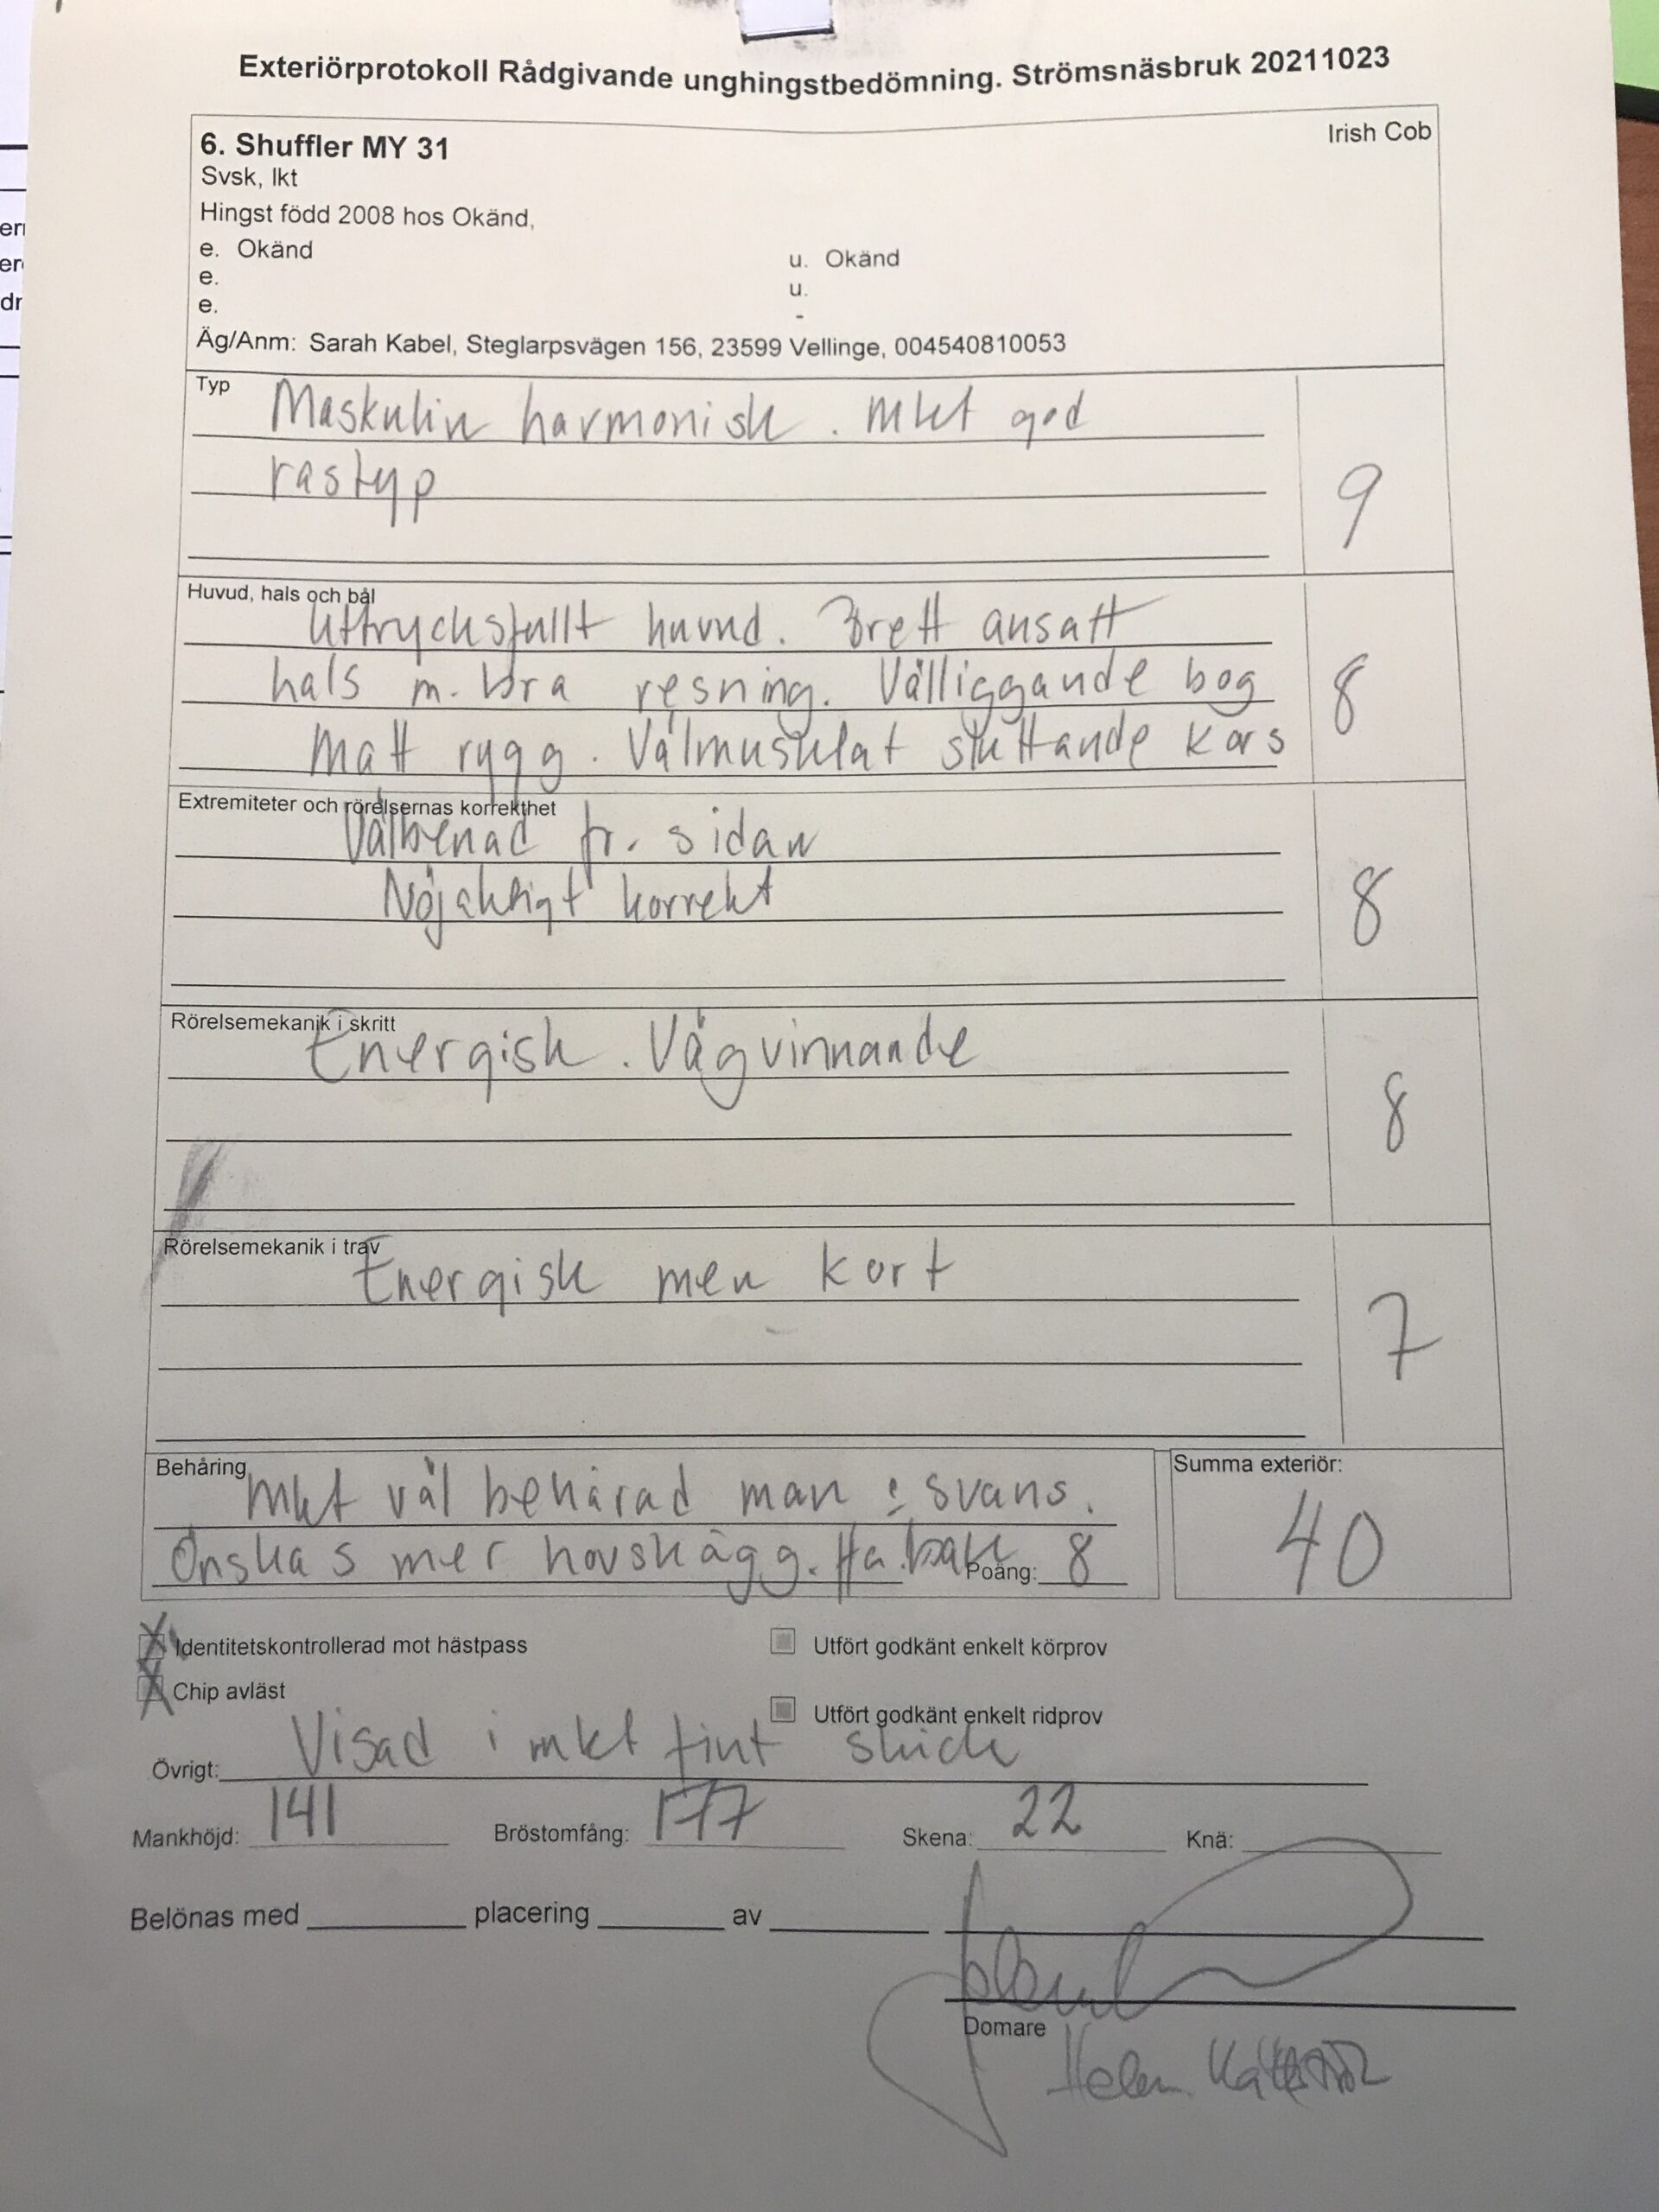 Exteriörprotokoll Rådgivande unghingstbedömning. Strömsnäsbruk 20211023
6. Shuffler MY 31
Irish Cob
Svsk, lkt
Hingst född 2008 hos Okänd,
e. Okänd
u. Okänd
e.
u.
e.
-
Äg/Anm: Sarah Kabel, Steglarpsvägen 156, 23599 Vellinge, 004540810053
Typ
Maskulin harmonisk. Mkt god
rastyp
9
Huvud, hals och bål
Uttrycksfullt huvud. Brett ansatt
hals m. bra resning. Välliggande bog
Matt rygg. Välmusklat sluttande kors
8
Extremiteter och rörelsernas korrekthet
Välbenad fr. sidan
Nöjaktigt korrekt
8
Rörelsemekanik i skritt
Energisk. Vägvinnande
8
Rörelsemekanik i trav
Energisk men kort
7
Behåring
Mkt väl behårad man & svans.
Önskas mer hovskägg. Ha. bak
Poäng: 8
Summa exteriör:
40
X Identitetskontrollerad mot hästpass
Utfört godkänt enkelt körprov
X Chip avläst
Utfört godkänt enkelt ridprov
Övrigt: Visad i mkt fint skick
Mankhöjd: 141 Bröstomfång: 177 Skena: 22 Knä:
Belönas med placering av
Domare
Helen